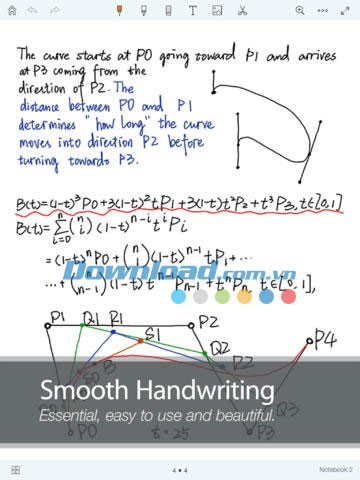 The curve starts at P0 going toward P1 and arrives
at P3 coming from the
direction of P2. The
distance between P0 and P1
determines "how long" the curve
moves into direction P2 before
turning towards P3.
B(t)=(1-t)³P0+3(1-t)²tP1+3(1-t)t²P2+t³P3, t∈[0,1]
B(t)=∑ⁿᵢ₌₀(ⁿᵢ)(1-t)ⁿ⁻ⁱtⁱPi
=(1-t)ⁿP0+(ⁿ₁)(1-t)ⁿ⁻¹tP1+⋯
⋯+(ⁿₙ₋₁)(1-t)tⁿ⁻¹Pn-1+tⁿPn, t∈[0,1],
Download.com.vn
P1 Q1 R1 S1 P2
Q2 P4
R2
S0 B
Smooth Handwriting
Q3
Essential, easy to use and beautiful.
P0 t=25 P3
4 • 4
Notebook 2